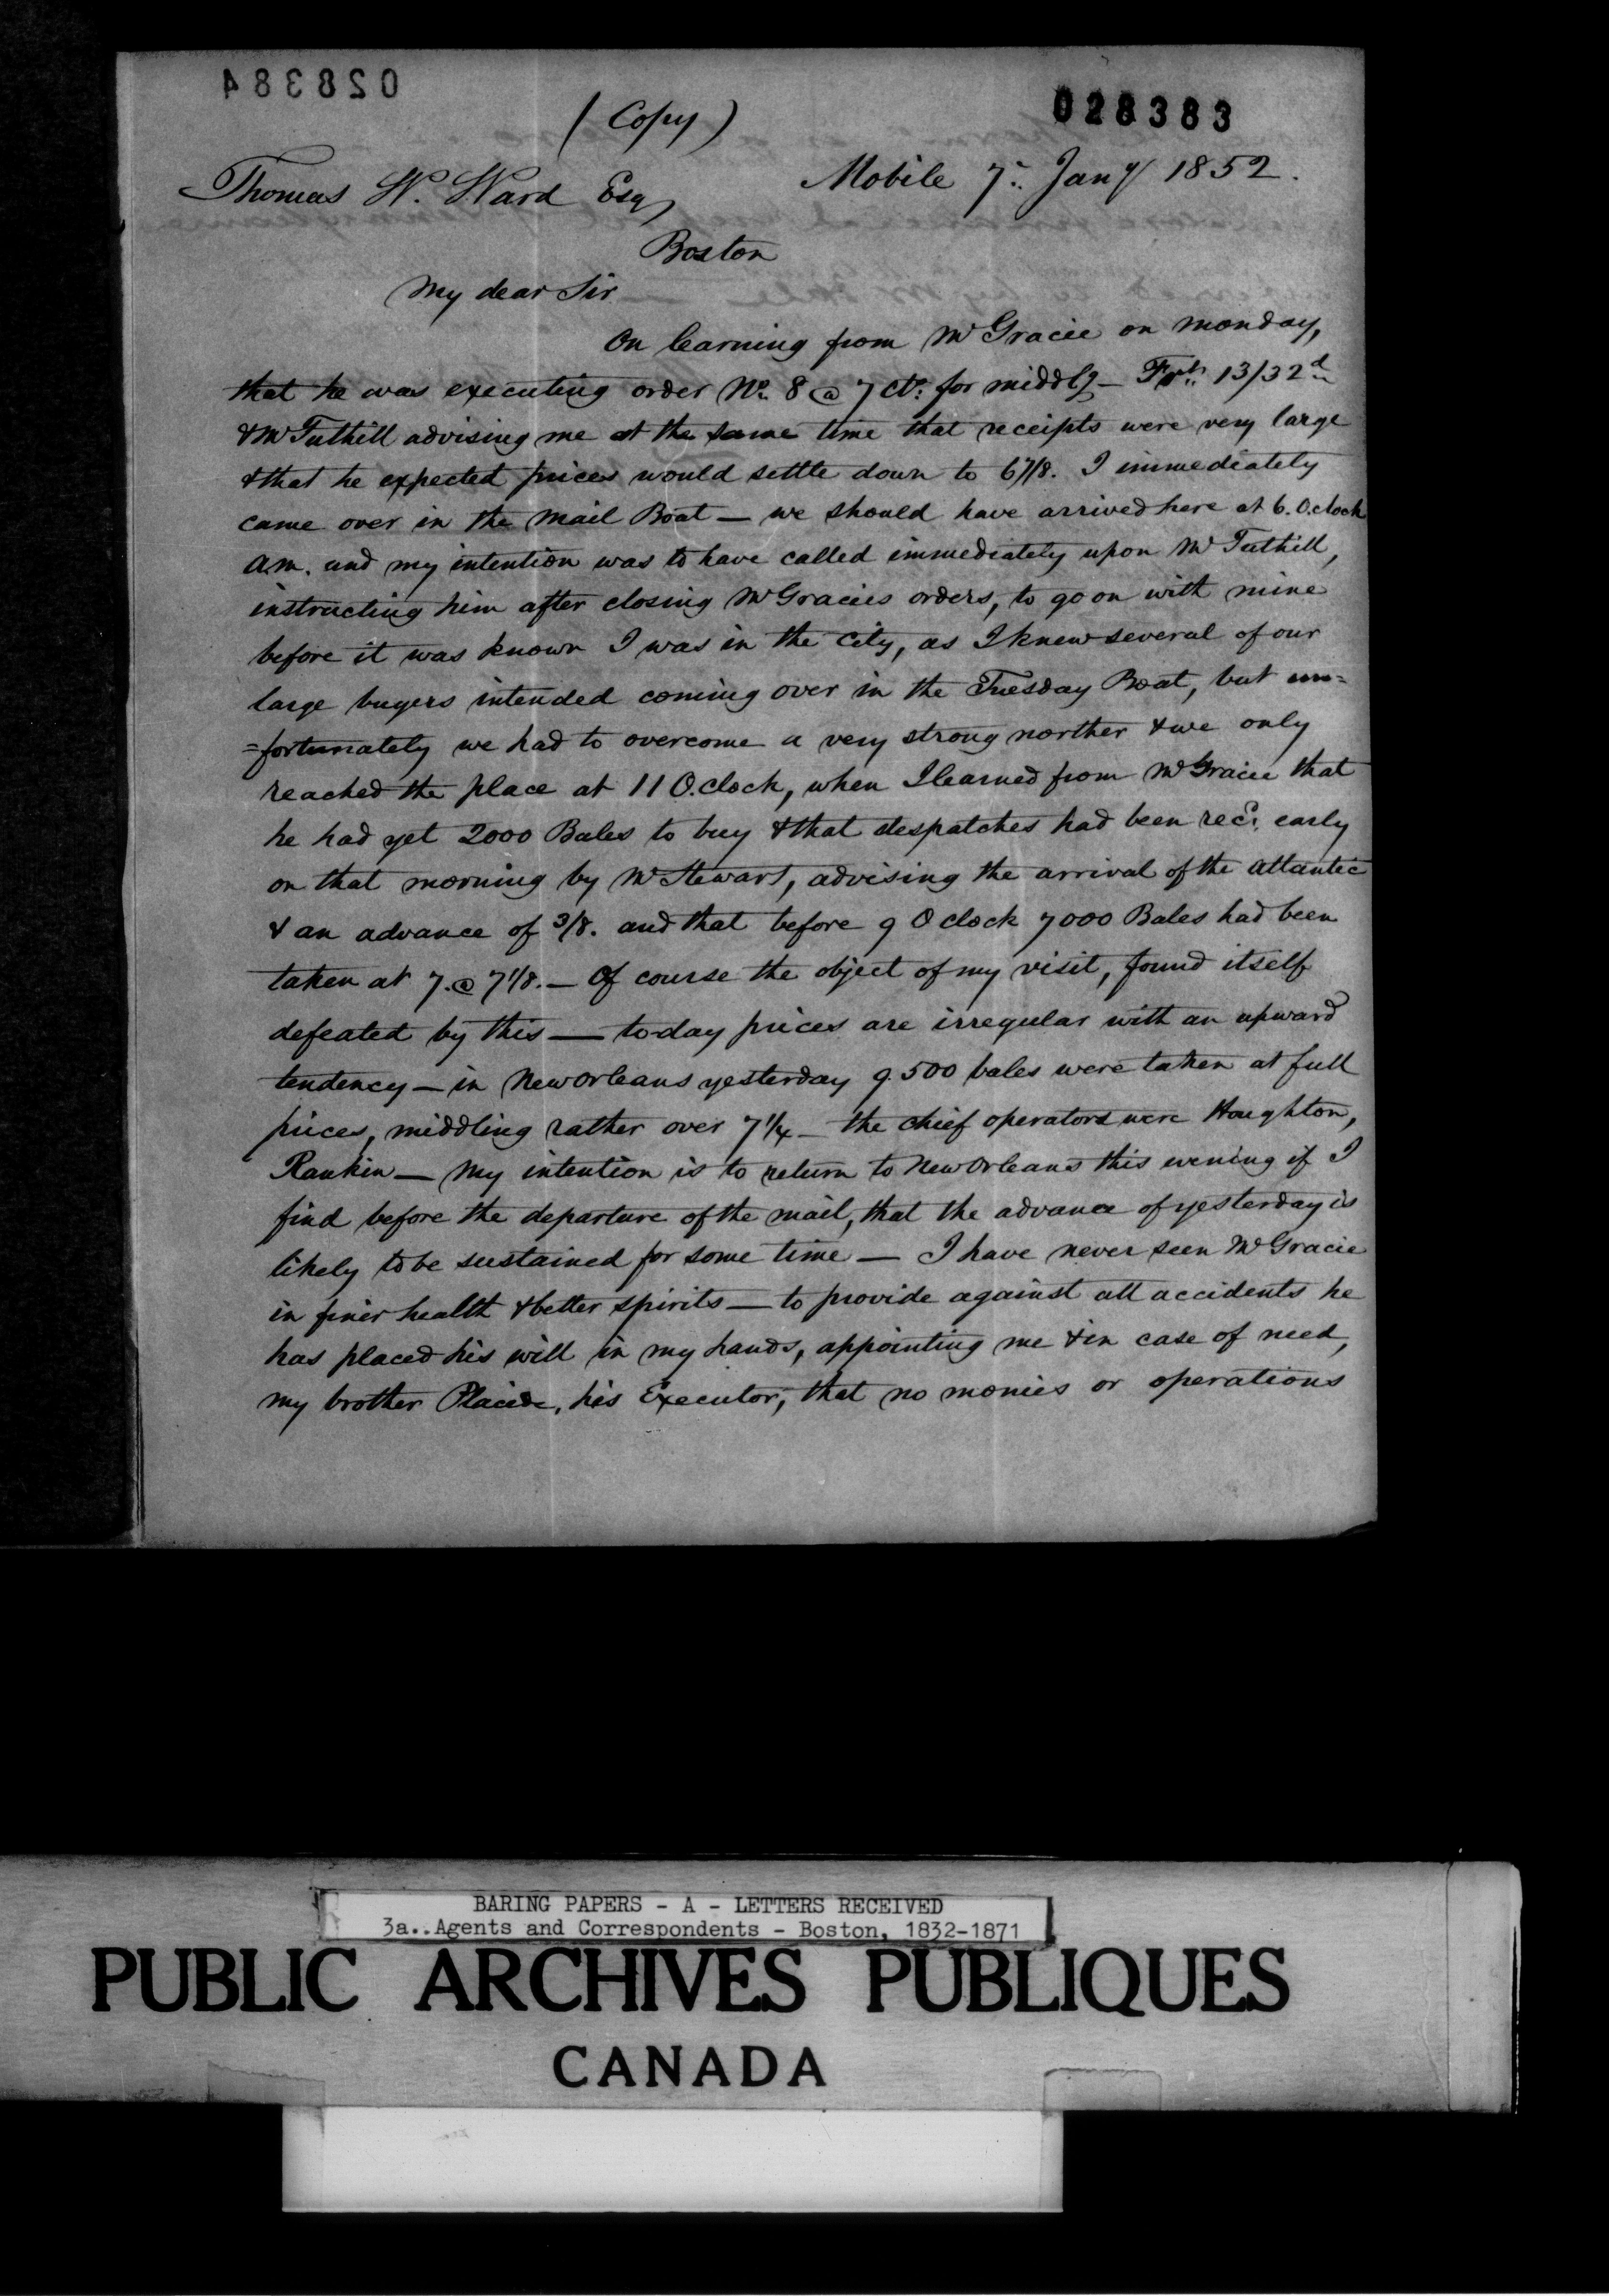 028384
028383
(Copy)
Mobile 7.. Jany 1852.
Thomas W. Ward Esq,
Boston
My dear Sir
On learning from Mr Gracie on Monday,
that he was executing order No. 8 @ 7 cts: for middlg — Frt: 13/32d
& Mr Tuthill advising me at the same time that receipts were very large
& that he expected prices would settle down to 6 7/8. I immediately
came over in the Mail Boat — we should have arrived here at 6. O.clock
A.M. and my intention was to have called immediately upon Mr Tuthill,
instructing him after closing Mr Gracies orders, to go on with mine
before it was known I was in the City, as I knew several of our
large buyers intended coming over in the Tuesday Boat, but un=
=fortunately we had to overcome a very strong norther & we only
reached the place at 11 O.clock, when I learned from Mr Gracie that
he had yet 2000 Bales to buy & that despatches had been recd. early
on that morning by Mr Stewart, advising the arrival of the Atlantic
& an advance of 3/8. and that before 9 O clock 7000 Bales had been
taken at 7. @ 7 1/8. — Of course the object of my visit, found itself
defeated by this — to-day prices are irregular with an upward
tendency — in New Orleans yesterday 9.500 bales were taken at full
prices, middling rather over 7 1/4 — the chief operators were Houghton,
Rankin — My intention is to return to New Orleans this evening if I
find before the departure of the mail, that the advance of yesterday is
likely to be sustained for some time — I have never seen Mr Gracie
in finer health & better spirits — to provide against all accidents he
has placed his will in my hands, appointing me & in case of need,
my brother Placide, his Executor, that no monies or operations
BARING PAPERS - A - LETTERS RECEIVED
3a..Agents and Correspondents - Boston, 1832-1871
PUBLIC ARCHIVES PUBLIQUES
CANADA